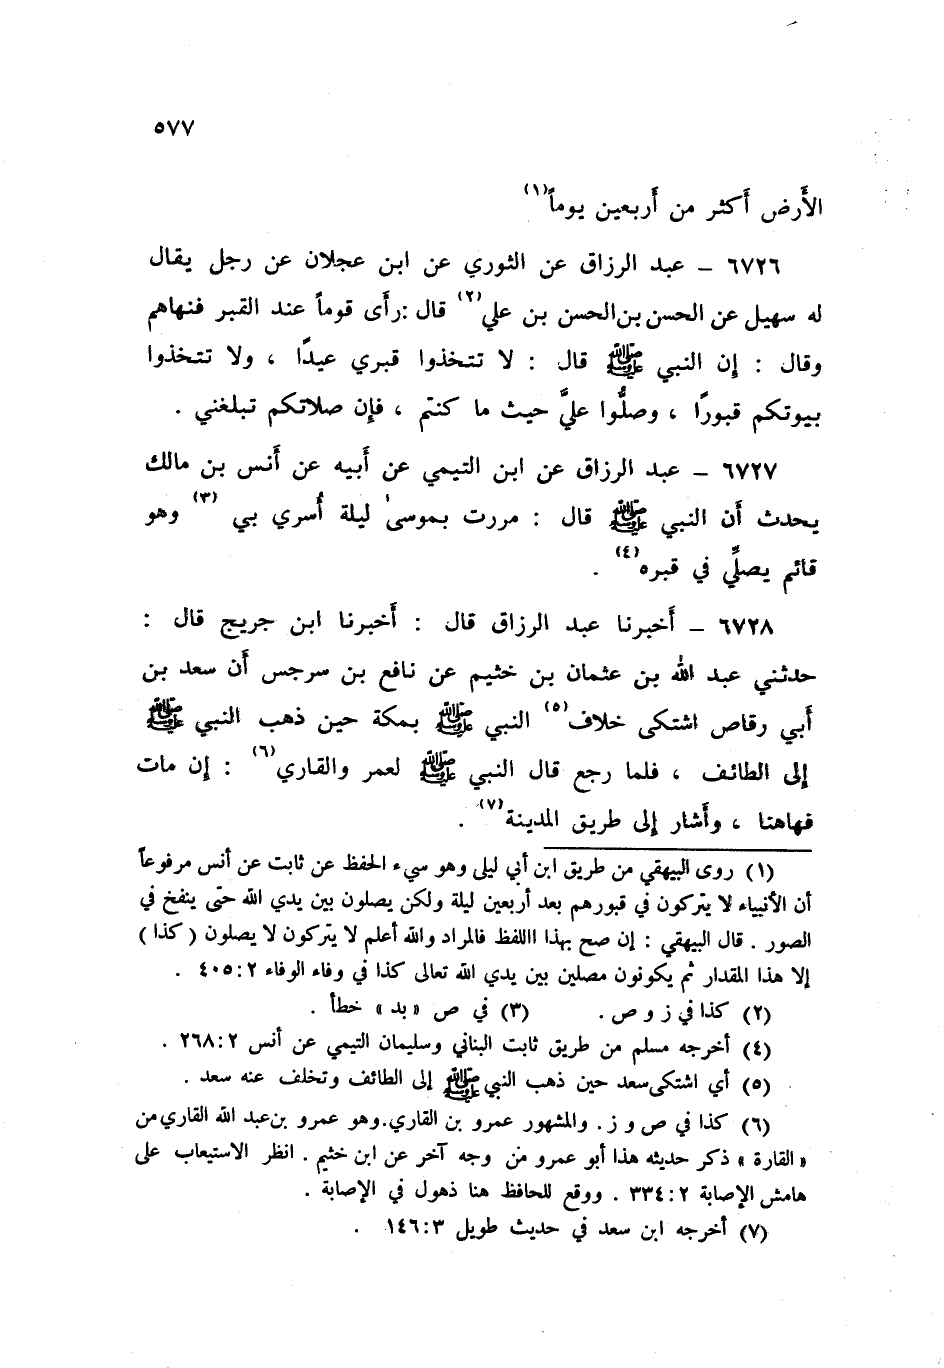 ٥٧٧
الأَرض أَكثر من أَربعين يوماً(١)
٦٧٢٦ – عبد الرزاق عن الثوري عن ابن عجلان عن رجل يقال
له سهيل عن الحسن بن الحسن بن علي(٢) قال : رأَى قوماً عند القبر فنهاهم
وقال : إن النبي ﷺ قال : لا تتخذوا قبري عيدًا ، ولا تتخذوا
بيوتكم قبورًا ، وصلُّوا عليَّ حيث ما كنتم ، فإن صلاتكم تبلغني .
٦٧٢٧ – عبد الرزاق عن ابن التيمي عن أَبيه عن أَنس بن مالك
يحدث أَن النبي ﷺ قال : مررت بموسىٰ ليلة أُسري بي (٣) وهو
قائم يصلِّي في قبره(٤) .
٦٧٢٨ – أَخبرنا عبد الرزاق قال : أَخبرنا ابن جريج قال :
حدثني عبد الله بن عثمان بن خثيم عن نافع بن سرجس أَن سعد بن
أَبي رقاص اشتكى خلاف(٥) النبي ﷺ بمكة حين ذهب النبي ﷺ
إلى الطائف ، فلما رجع قال النبي ﷺ لعمر والقاري(٦) : إن مات
فهاهنا ، وأَشار إلى طريق المدينة(٧) .
(١) روى البيهقي من طريق ابن أبي ليلى وهو سيء الحفظ عن ثابت عن أنس مرفوعاً
أن الأنبياء لا يتركون في قبورهم بعد أربعين ليلة ولكن يصلون بين يدي الله حتى ينفخ في
الصور . قال البيهقي : إن صح بهذا االلفظ فالمراد والله أعلم لا يتركون لا يصلون ( كذا )
إلا هذا المقدار ثم يكونون مصلين بين يدي الله تعالى كذا في وفاء الوفاء ٤٠٥:٢ .
(٢) كذا في ز و ص . (٣) في ص « بد » خطأ .
(٤) أخرجه مسلم من طريق ثابت البناني وسليمان التيمي عن أنس ٢٦٨:٢ .
(٥) أي اشتكى سعد حين ذهب النبي ﷺ إلى الطائف وتخلف عنه سعد .
(٦) كذا في ص و ز . والمشهور عمرو بن القاري . وهو عمرو بن عبد الله القاري من
« القارة » ذكر حديثه هذا أبو عمرو من وجه آخر عن ابن خثيم . انظر الاستيعاب على
هامش الإصابة ٣٣٤:٢ . ووقع للحافظ هنا ذهول في الإصابة .
(٧) أخرجه ابن سعد في حديث طويل ١٤٦:٣ .